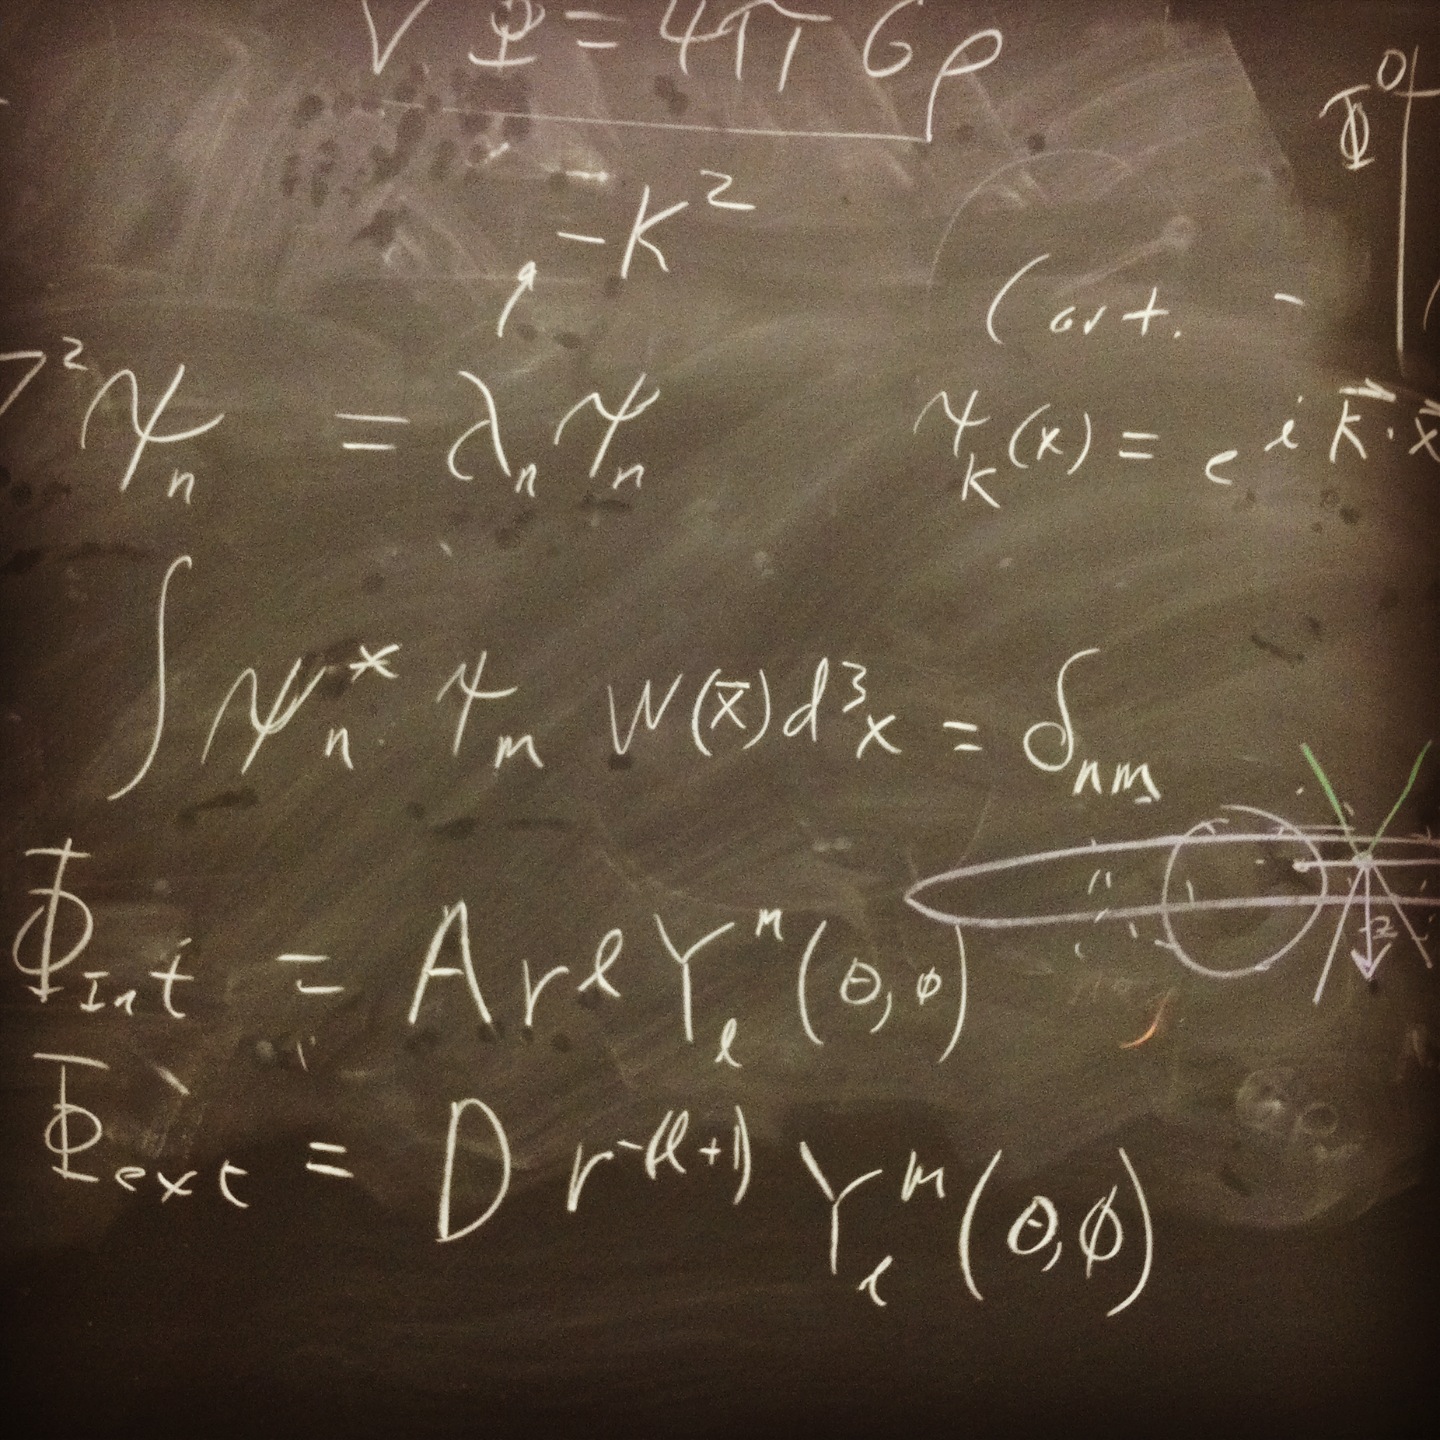 ∇Φ = 4πGρ
Φ⁰
-K²
Cart. -
∇²ψₙ = λₙψₙ
ψ_K(x) = e^{i k⃗·x⃗}
∫ψₙ* ψₘ W(x̄)d³x = δₙₘ
z
Φ_Int = A r^ℓ Y_ℓ^m(θ,φ)
Φ_ext = D r^{-(ℓ+1)} Y_ℓ^m(θ,φ)